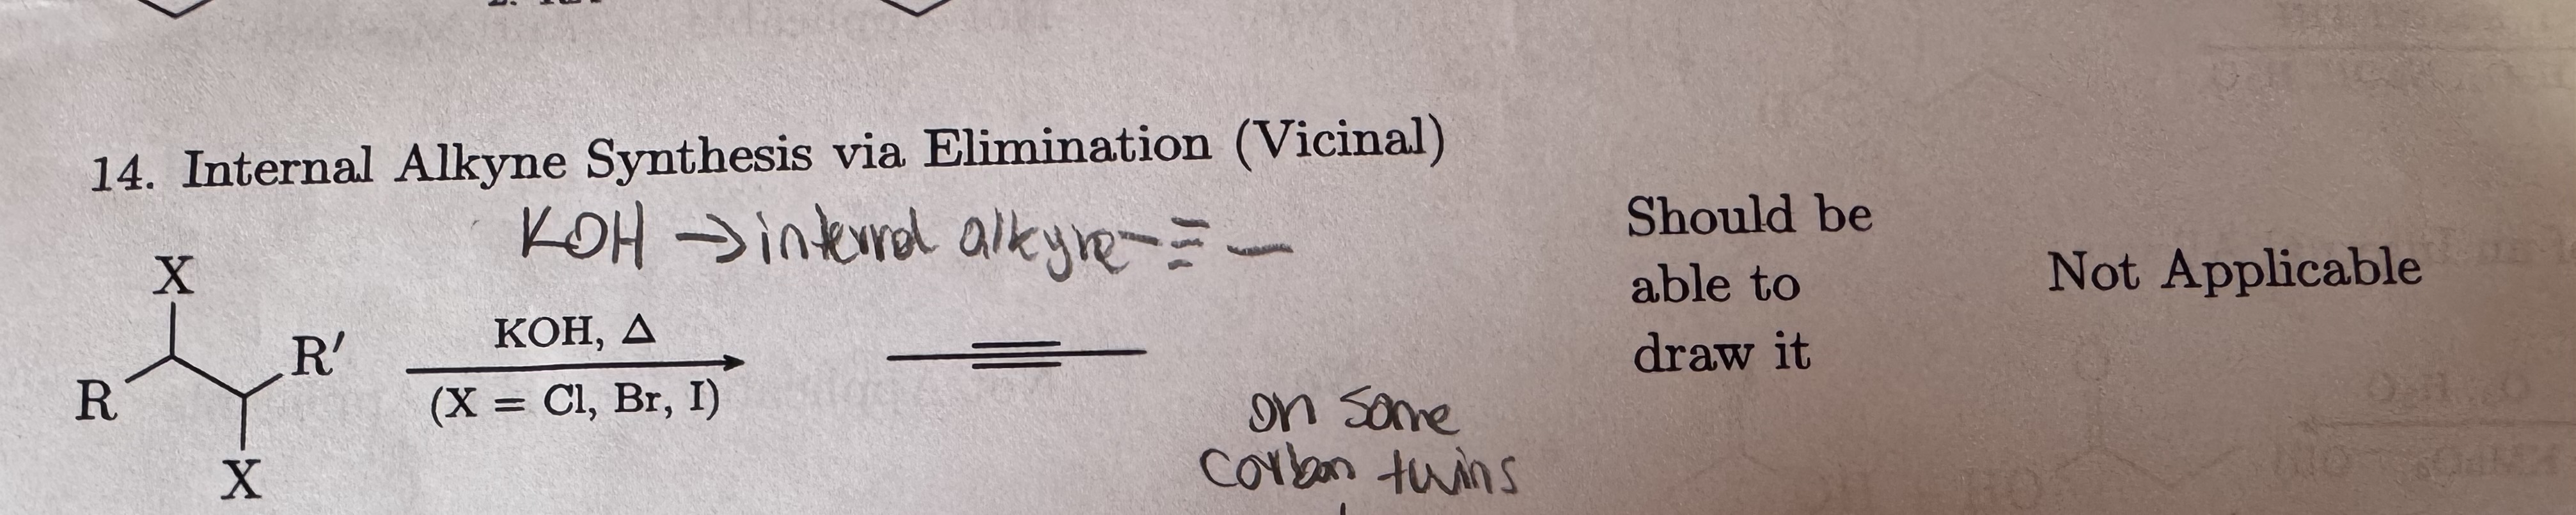 14. Internal Alkyne Synthesis via Elimination (Vicinal)
KOH → internal alkyne - ≡ -
Should be
able to
draw it
Not Applicable
X
R
R′
X
KOH, Δ
(X = Cl, Br, I)
on same
Carbon twins